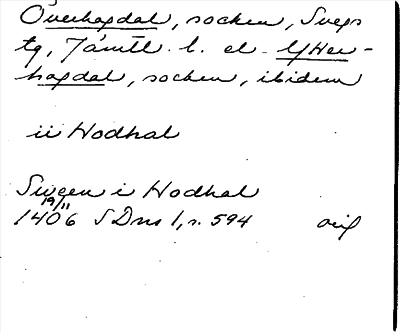 Överhogdal, socken, Svegs
tg, Jämtl. l. el. Ytter-
hogdal, socken, ibidem
ii Hodhal
Sween i Hodhal
19/11
1406 SDns 1, s. 594 orig